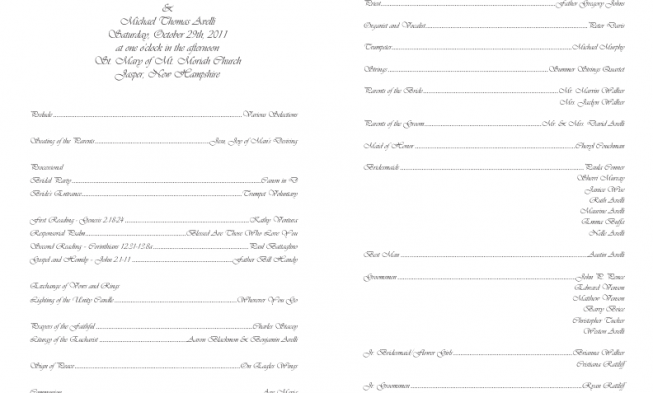 &
Michael Thomas Avelli
Saturday, October 29th, 2011
at one o'clock in the afternoon
St. Mary of Mt. Moriah Church
Jasper, New Hampshire
Prelude Various Selections
Seating of the Parents Jesu, Joy of Man's Desiring
Processional
Bridal Party Canon in D
Bride's Entrance Trumpet Voluntary
First Reading - Genesis 2:18-24 Kathy Ventura
Responsorial Psalm Blessed Are Those Who Love You
Second Reading - Corinthians 12:31-13:8a Paul Battaglino
Gospel and Homily - John 2:1-11 Father Bill Hardy
Exchange of Vows and Rings
Lighting of the Unity Candle Wherever You Go
Prayers of the Faithful Charles Stacey
Liturgy of the Eucharist Aaron Blackmon & Benjamin Avelli
Sign of Peace On Eagles Wings
Communion Ave Maria
Priest Father Gregory Johns
Organist and Vocalist Peter Davis
Trumpeter Michael Murphy
Strings Summer Strings Quartet
Parents of the Bride Mr. Marvin Walker
Mrs. Jaclyn Walker
Parents of the Groom Mr. & Mrs. David Avelli
Maid of Honor Cheryl Couchman
Bridesmaids Paula Conner
Sherri Murray
Janice Wue
Ruth Avelli
Maurine Avelli
Emma
Nelle Avelli
Best Man Austin Avelli
Groomsmen John P. Ponce
Edward Venson
Matthew Venson
Barry Brice
Christopher Tucker
Weston Avelli
Jr. Bridesmaid/Flower Girls Brianna Walker
Cristiana Ratliff
Jr. Groomsmen Ryan Ratliff